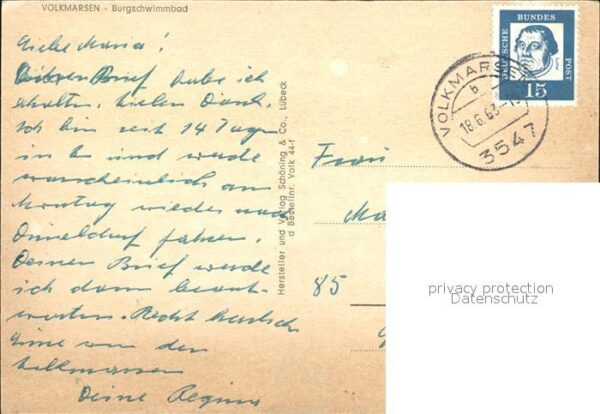 VOLKMARSEN - Burgschwimmbad
Liebe Maria!
Deinen Brief habe ich
erhalten, vielen Dank.
Ich bin seit 14 Tagen
in und werde
wahrscheinlich am
Montag wieder nach
Düsseldorf fahren.
Deinen Brief werde
ich dann beant-
worten. Recht herzlich
Grüße von der
Volkmarsen
Deine Regina
Hersteller und Verlag Schöning & Co., Lübeck
Bestellnr. Volk 44
DEUTSCHE BUNDES POST
15
VOLKMARSEN
b
18.6.63
3547
Frau
Ma
85
privacy protection
Datenschutz